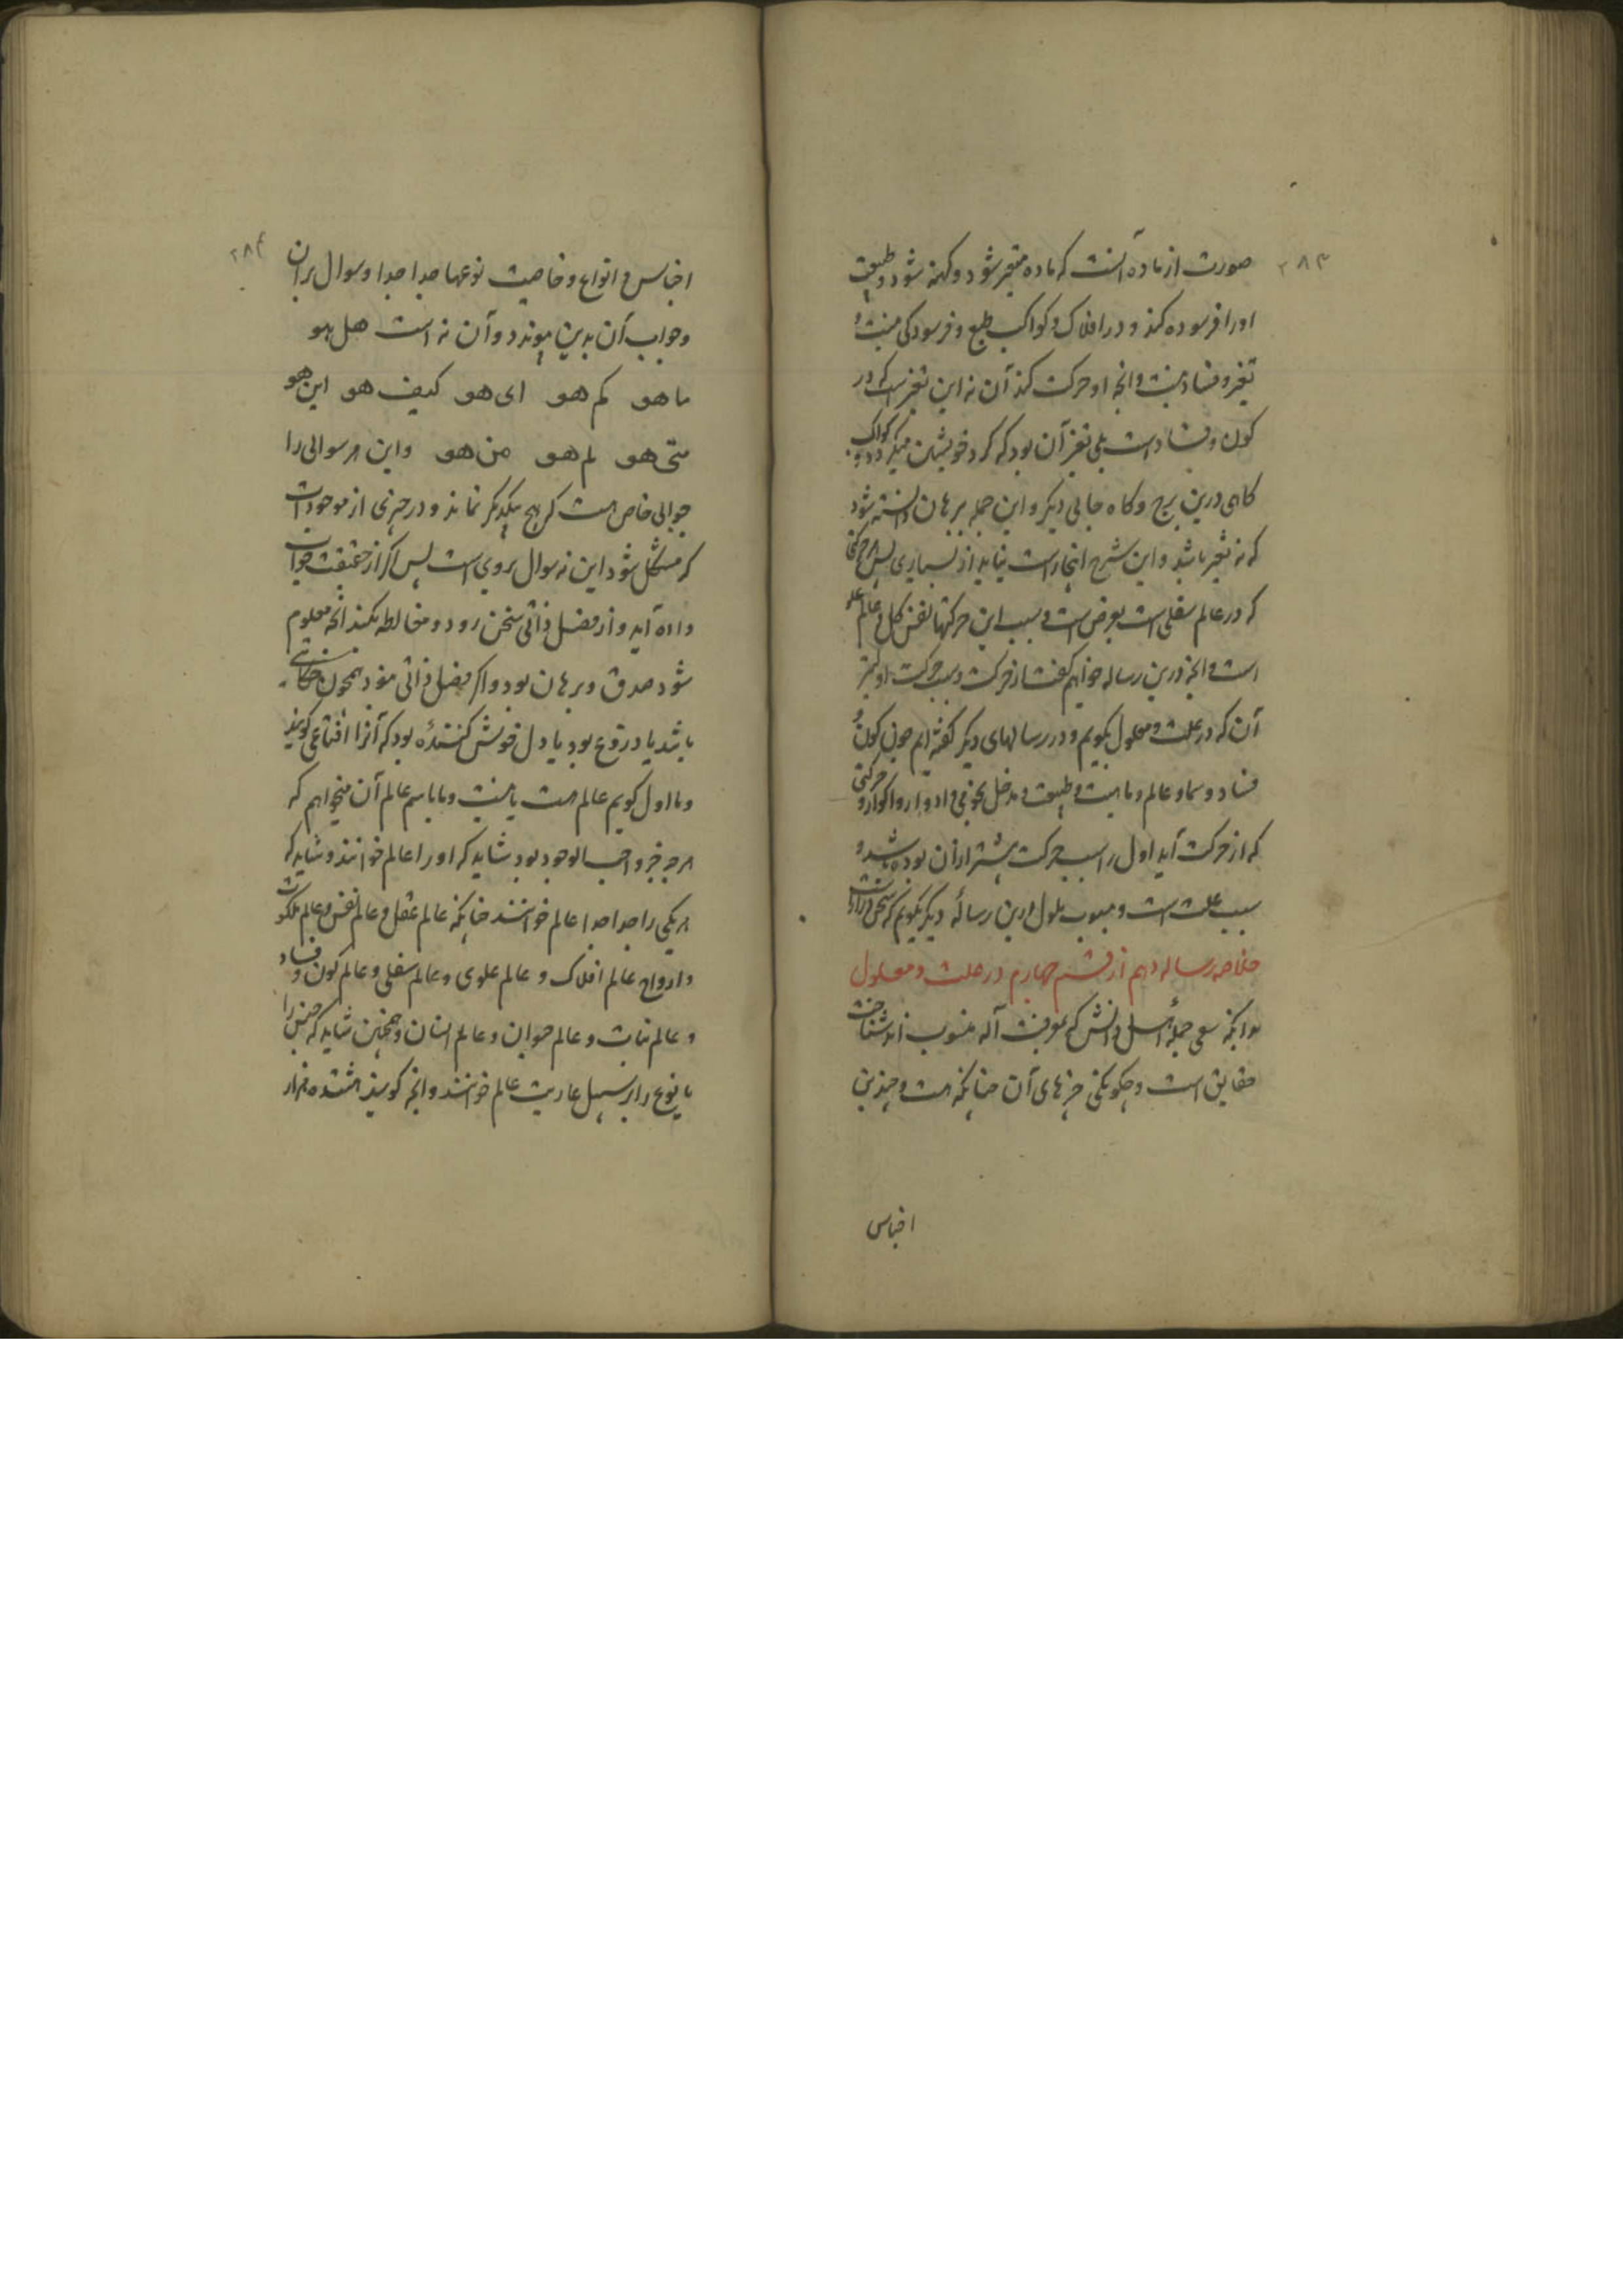 ۲۸۳
صورت از ماده آنست که ماده متغیر شود و کهنه شود و طبیعت
اورا فرسوده کند و در افلاک و کواکب طبع و فرسودگی نیست و
تغیر و فساد نیست و انچه او حرکت کند آن نه این تغیر است که در
کون و فساد است بلی تغیر آن بود که گرد خویشتن میگردد و کواکب
گاهی درین برج و گاه جایی دیگر و این جمله ببرهان دانسته شود
که نه تغیر باشد و این شرح اینجا راست نیاید از بسیاری پس هر حرکتی
که در عالم سفلی است بعرض است و سبب این حرکتها نفس کل و عالم علو
است و انچه درین رساله خواهیم گفت از حرکت و سبب حرکت او
آن که در علت و معلول بگویم و در رسالهای دیگر گفته ایم چون کون و
فساد و سما و عالم و ماهیت و طبیعت و مدخل نجومی و ادوار و اکوار و حرکتی
که از حرکت آید اول را سبب حرکت بیشتر ازان بوده باشد و
سبب علت است و مسبوب معلول و درین رسالهٔ دیگر بگویم که سخن
خلاصه رساله دهم از قسم چهارم در علت و معلول
بدانکه سعی جملهٔ اهل دانش که بمعرفت آله منسوب اند شناخت
حقایق است و چگونگی چیزهای آن چنانکه هست و چندین
اجناس
۲۸۴
اجناس و انواع و خاصیت نوعها جدا جدا و سوال بران
وجواب آن بدین پیوندد و آن نه است هل هو
ما هو کم هو ای هو کیف هو این هو
متی هو لم هو من هو واین هر سوالی را
جوابی خاص است که هیچ بیکدیگر نماند و در چیزی از موجودات
که مشکل شود این نه سوال بروی است پس اگر از حقیقت جواب
داده آید و از فصل ذاتی سخن رود و مغالطه نکند انچه معلوم
شود صدق و برهان بود و اگر فصل ذاتی نبود همچون
باشد یا دروغ بود یا دل خوش کنندهٔ بود که آنرا اقناعی گویند
و ما اول گویم عالم هست یا نیست و ما باسم عالم آن میخواهم که
هرچه جز واجب الوجود بود شاید که اورا عالم خوانند و شاید که
هر یکی را جدا جدا عالم خوانند چنانکه عالم عقل و عالم نفس و عالم ملکوت
و ارواح عالم افلاک و عالم علوی و عالم سفلی و عالم کون و فساد
و عالم نبات و عالم حیوان و عالم انسان و همچنین شاید که جنس را
یا نوع را بر سبیل عاریت عالم خوانند و انچه گویند هشتده هزار